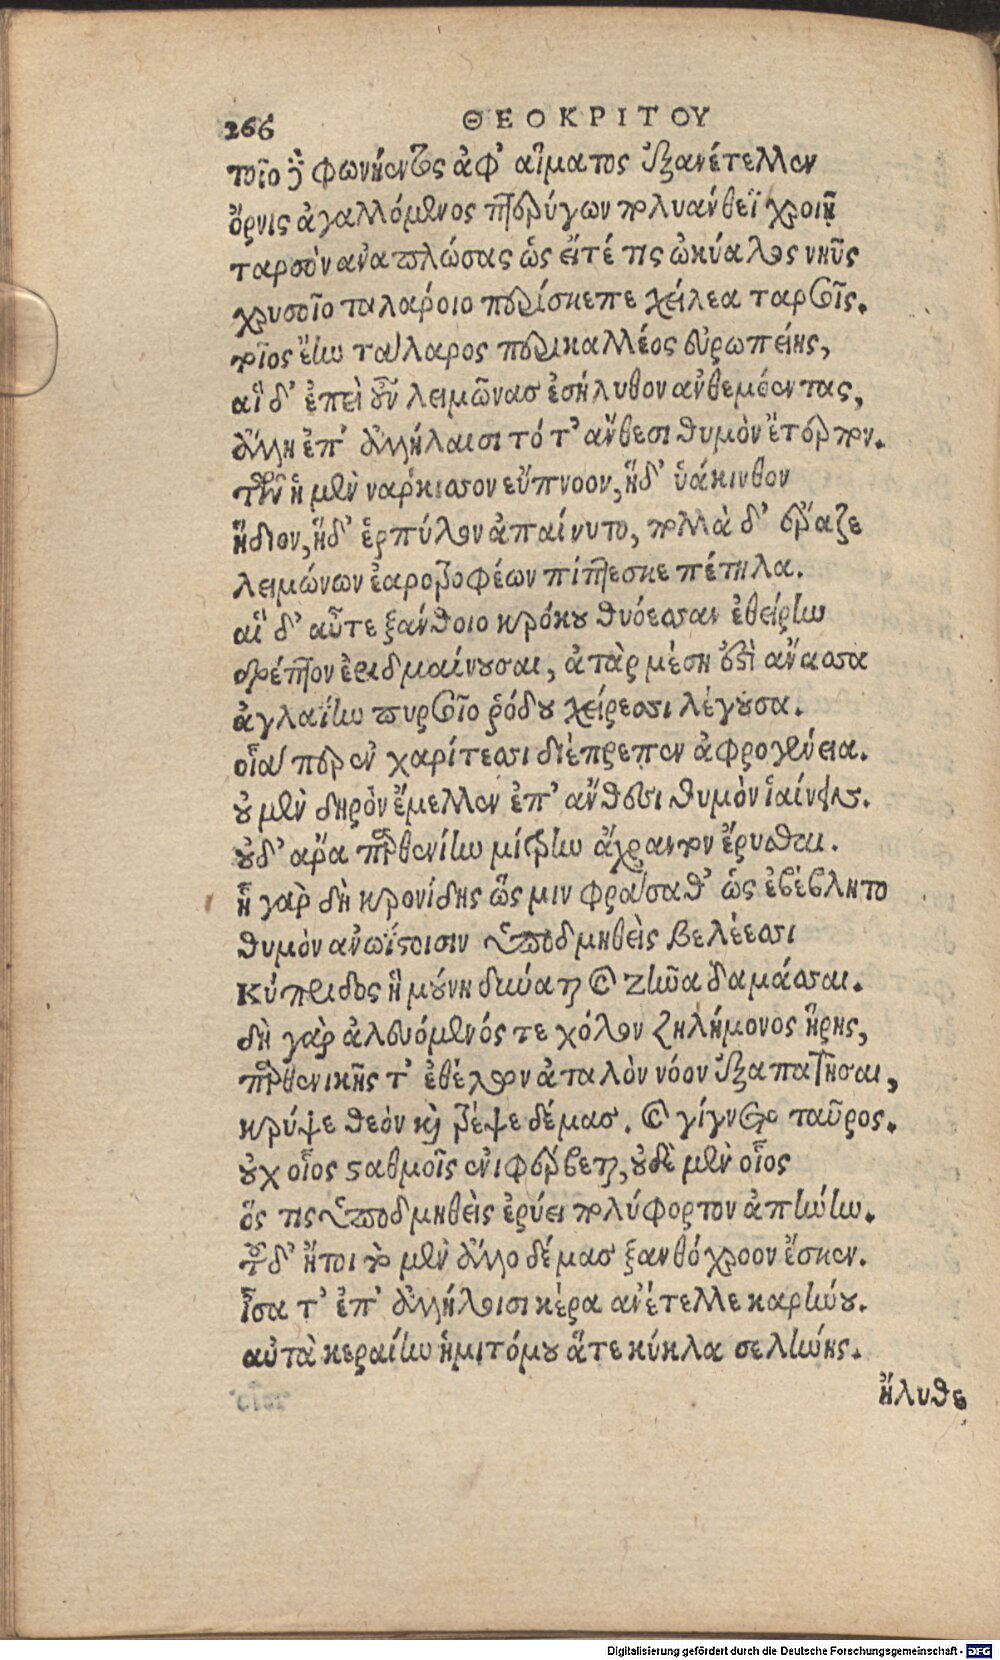 266 ΘΕΟΚΡΙΤΟΥ
τοῖο δὲ φωνήεντος ἀφ' αἵματος ἐξανέτελλεν
ὄρνις ἀγαλλόμενος πτερύγων πολυανθέϊ χροιῇ
ταρσὸν ἀναπλώσας ὡς εἴτέ τις ὠκύαλος νηῦς
χρυσοῖο ταλάροιο περίσκεπε χείλεα ταρσοῖς.
τοῖος ἔην τάλαρος περικαλλέος εὐρωπείης,
αἵ δ' ἐπεὶ οὖν λειμῶνας ἐσήλυθον ἀνθεμόεντας,
ἄλλη ἐπ' ἀλλήλαισι τότ' ἄνθεσι θυμὸν ἔτερπον.
τῶν ἡ μὲν νάρκισσον εὔπνοον, ἥδ' ὑάκινθον
ἥδιον, ἥδ' ἕρπυλον ἀπαίνυτο, πολλὰ δ' ἔραζε
λειμώνων ἐαροτροφέων πίπτεσκε πέτηλα.
αἵ δ' αὖτε ξανθοῖο κρόκου θυόεσσαν ἐθείρην
δρέπτον ἐριδμαίνουσαι, ἀτὰρ μέση ἔστη ἄνασσα
ἀγλαΐην πυρσοῖο ῥόδου χείρεσσι λέγουσα.
οἷά περ ἐν χαρίτεσσι διέπρεπεν ἀφρογένεια.
οὐ μὲν δηρὸν ἔμελλεν ἐπ' ἄνθεσι θυμὸν ἰαίνειν.
οὐδ' ἄρα παρθενίην μίτρην ἄχραντον ἔρυσθαι.
ἦ γὰρ δὴ κρονίδης ὥς μιν φράσαθ' ὡς ἐβέβλητο
θυμὸν ἀνωΐστοισιν ὑποδμηθεὶς βελέεσσι
Κύπριδος ἣ μούνη δύναται καὶ ζῆνα δαμάσσαι.
δὴ γὰρ ἀλευόμενός τε χόλον ζηλήμονος ἥρης,
παρθενικῆς τ' ἐθέλων ἀταλὸν νόον ἐξαπατῆσαι,
κρύψε θεὸν καὶ τρέψε δέμας. καὶ γίγνετο ταῦρος.
οὐχ οἷος σταθμοῖς ἐνιφέρβεται, οὐδὲ μὲν οἷος
ὅς τις ὑποδμηθεὶς ἐρύει πολύφορτον ἀπήνην.
τοῦ δ' ἤτοι τὸ μὲν ἄλλο δέμας ξανθόχροον ἔσκεν.
ἶσα τ' ἐπ' ἀλλήλοισι κέρα ἀνέτελλε καρήνου.
αὐτὰ κεραίην ἡμιτόμου ἅτε κύκλα σελήνης.
ἤλυθε
Digitalisierung gefördert durch die Deutsche Forschungsgemeinschaft - DFG